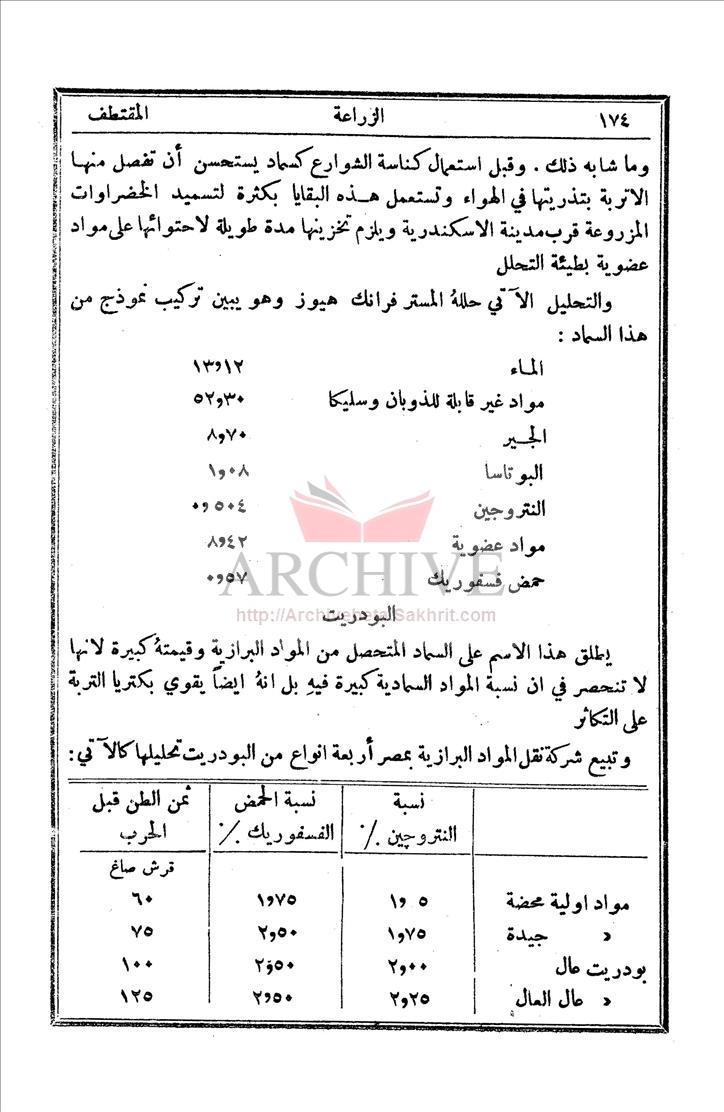 ١٧٤ الزراعة المقتطف
وما شابه ذلك . وقبل استعمال كناسة الشوارع كسماد يستحسن أن تفصل منها
الاتربة بتذريتها في الهواء وتستعمل هذه البقايا بكثرة لتسميد الخضراوات
المزروعة قرب مدينة الاسكندرية ويلزم تخزينها مدة طويلة لاحتوائها على مواد
عضوية بطيئة التحلل
والتحليل الآتي حللهُ المستر فرانك هيوز وهو يبين تركيب نموذج من
هذا السماد :
الماء ١٣٫١٢
مواد غير قابلة للذوبان وسليكا ٥٢٫٣٠
الجير ٨٫٧٠
البوتاسا ١٫٠٨
النتروجين ٠٫٥٠٤
مواد عضوية ٨٫٤٢
حمض فسفوريك ٠٫٥٧
ARCHIVE
http://Archivebeta.Sakhrit.com
البودريت
يطلق هذا الاسم على السماد المتحصل من المواد البرازية وقيمتهُ كبيرة لانها
لا تنحصر في ان نسبة المواد السمادية كبيرة فيهِ بل انهُ ايضاً يقوي بكتريا التربة
على التكاثر
وتبيع شركة نقل المواد البرازية بمصر أربعة انواع من البودريت تحليلها كالآتي :
نسبة النتروچين ٪ نسبة الحمض الفسفوريك ٪ ثمن الطن قبل الحرب
قرش صاغ
مواد اولية محضة ١٫٥ ١٫٧٥ ٦٠
« جيدة ١٫٧٥ ٢٫٥٠ ٧٥
بودريت عال ٢٫٠٠ ٢٫٥٠ ١٠٠
« عال العال ٢٫٢٥ ٢٫٥٠ ١٢٥